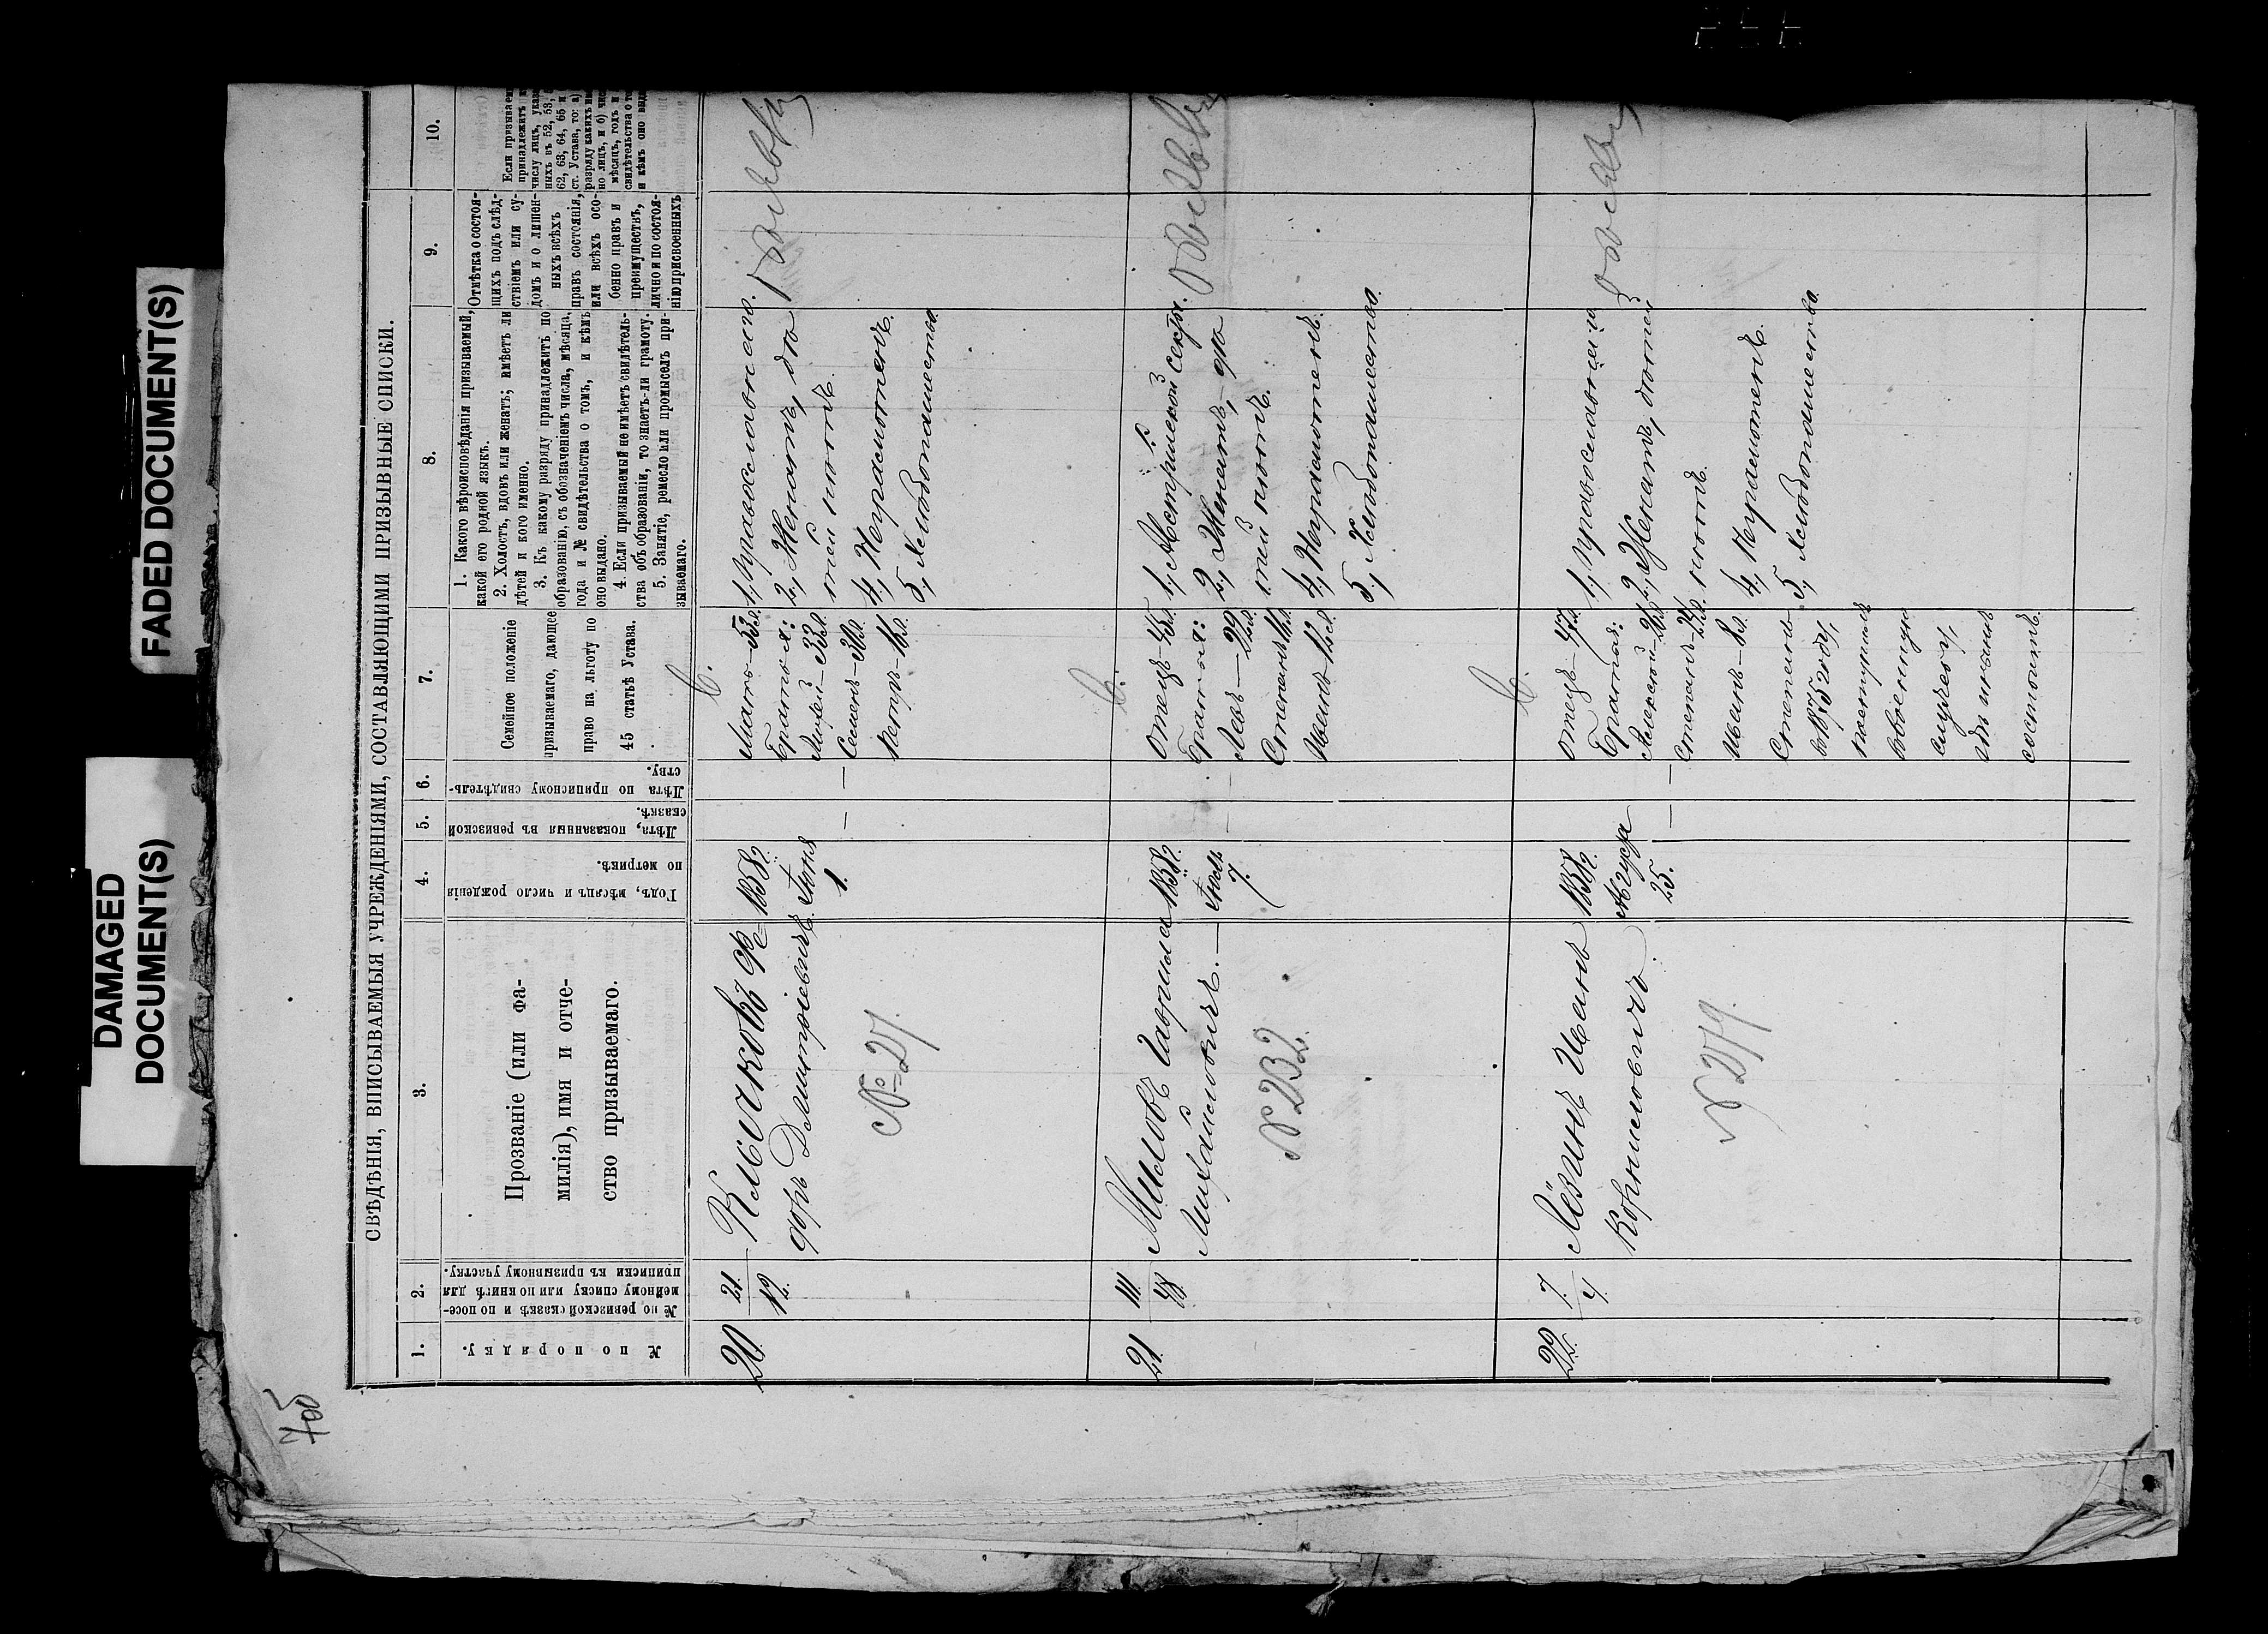 FADED DOCUMENT(S)
DAMAGED
DOCUMENT(S)
СВѢДѢНІЯ, ВПИСЫВАЕМЫЯ УЧРЕЖДЕНІЯМИ, СОСТАВЛЯЮЩИМИ ПРИЗЫВНЫЕ СПИСКИ.
1.
2.
3.
4.
5.
6.
7.
8.
9.
10.
№ по порядку.
№ по ревизской сказкѣ и по посе-
мейному списку или по книгѣ для
приписки къ призывному участку.
Прозваніе (или фа-
милія), имя и отче-
ство призываемаго.
Годъ, мѣсяцъ и число рожденія
по метрикѣ.
Лѣта, показанныя въ ревизской
сказкѣ.
Лѣта по приписному свидѣтель-
ству.
Семейное положеніе
призываемаго, дающее
право на льготу по
45 статьѣ Устава.
1. Какого вѣроисповѣданія призываемый,
какой его родной языкъ.
2. Холостъ, вдовъ или женатъ; имѣетъ ли
дѣтей и кого именно.
3. Къ какому разряду принадлежитъ по
образованію, съ обозначеніемъ числа, мѣсяца,
года и № свидѣтельства о томъ, и кѣмъ
оно выдано.
4. Если призываемый не имѣетъ свидѣтель-
ства объ образованіи, то знаетъ-ли грамоту.
5. Занятіе, ремесло или промыселъ при-
зываемаго.
Отмѣтка о состоя-
щихъ подъ слѣд-
ствіемъ или су-
домъ и о лишен-
ныхъ всѣхъ
правъ состоянія,
или всѣхъ осо-
бенно правъ и
преимуществъ,
лично и по состоя-
нію присвоенныхъ
Если призываем
принадлежитъ к
числу лицъ, указ
ныхъ въ 52, 53,
62, 63, 64, 65 и
ст. Устава, то: а)
разряду какихъ им
но лицъ, и б) чис
мѣсяцъ, годъ и
свидѣтельства о то
и кѣмъ оно выд
20
21.
12.
Клочковъ Фе-
доръ Дмитріевичъ.
№ 27.
1858 г.
Іюня
1.
—
—
Мать — 53 л.
Братья:
Михей — 33 л.
Семенъ — 30 л.
Петръ — 16 л.
1, Православнаго.
2, Женатъ, дѣ
тей нѣтъ.
4, Неграмотенъ.
5, Хлѣбопашество.
21
111.
Миловъ Гаврила
Михайловичъ. —
№ 232.
1858 г.
Іюль
7.
—
—
Отецъ — 45 л.
Братья:
Левъ — 22 л.
Степанъ 16 л.
Иванъ — 12 л.
1, Австрійской секты.
2, Женатъ, дѣ
тей нѣтъ.
4, Неграмотенъ.
5, Хлѣбопашество.
22.
7.
4.
Лёзинъ Иванъ
Корниловичъ.
№ 279.
1858 г.
Августа
25.
—
—
Отецъ — 47 л.
Братья:
Алексѣй — 26 л.
Степанъ — 24 л.
Иванъ — 8 л.
Степанъ
въ 1875 году,
поступилъ
военную
службу,
состоитъ.
1, Православнаго
2, Женатъ, дѣтей
нѣтъ.
4, Неграмотенъ.
5, Хлѣбопашество.